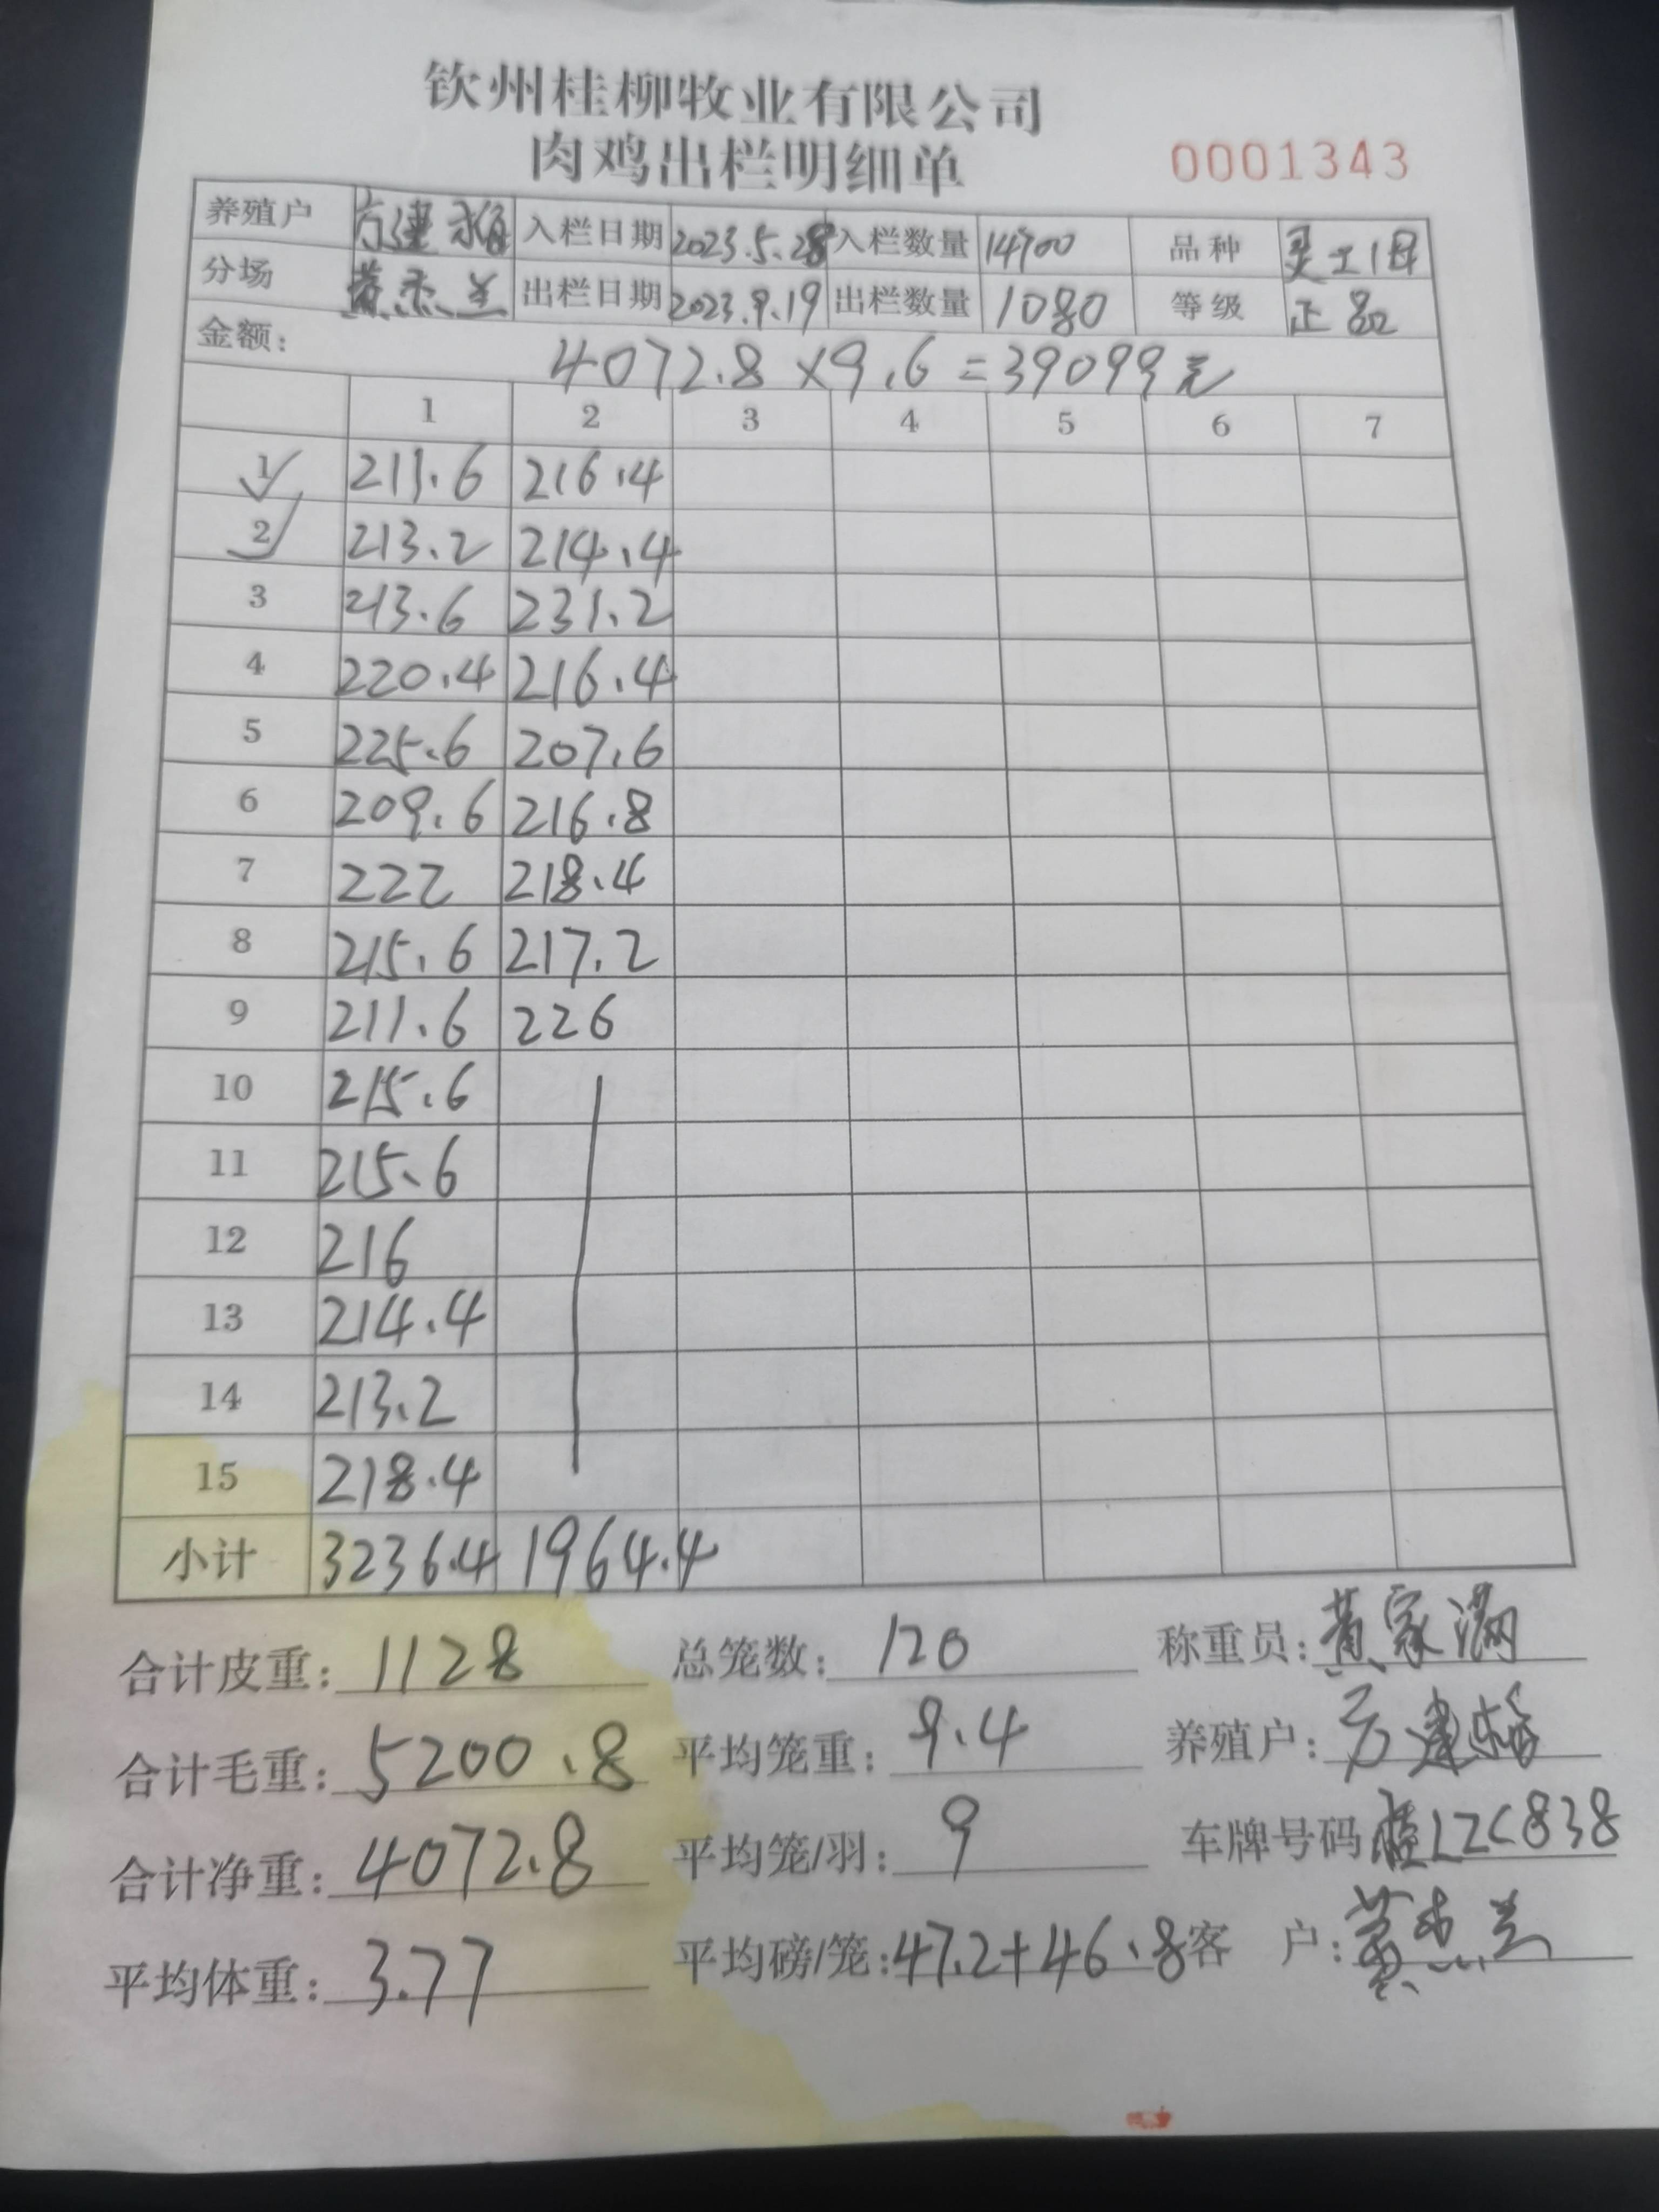 钦州桂柳牧业有限公司
肉鸡出栏明细单 0001343
养殖户 方建梅 入栏日期 2023.5.28 入栏数量 14700 品种 灵土1母
分场 黄杰兰 出栏日期 2023.9.19 出栏数量 1080 等级 正品
金额: 4072.8×9.6=39099元
1 2 3 4 5 6 7
1 211.6 216.4
2 213.2 214.4
3 213.6 231.2
4 220.4 216.4
5 225.6 207.6
6 209.6 216.8
7 222 218.4
8 215.6 217.2
9 211.6 226
10 215.6
11 215.6
12 216
13 214.4
14 213.2
15 218.4
小计 3236.4 1964.4
合计皮重: 1128 总笼数: 120 称重员: 黄家满
合计毛重: 5200.8 平均笼重: 9.4 养殖户: 方建梅
合计净重: 4072.8 平均笼/羽: 9 车牌号码 LZC838
平均体重: 3.77 平均磅/笼: 47.2+46.8 客 户: 黄杰兰